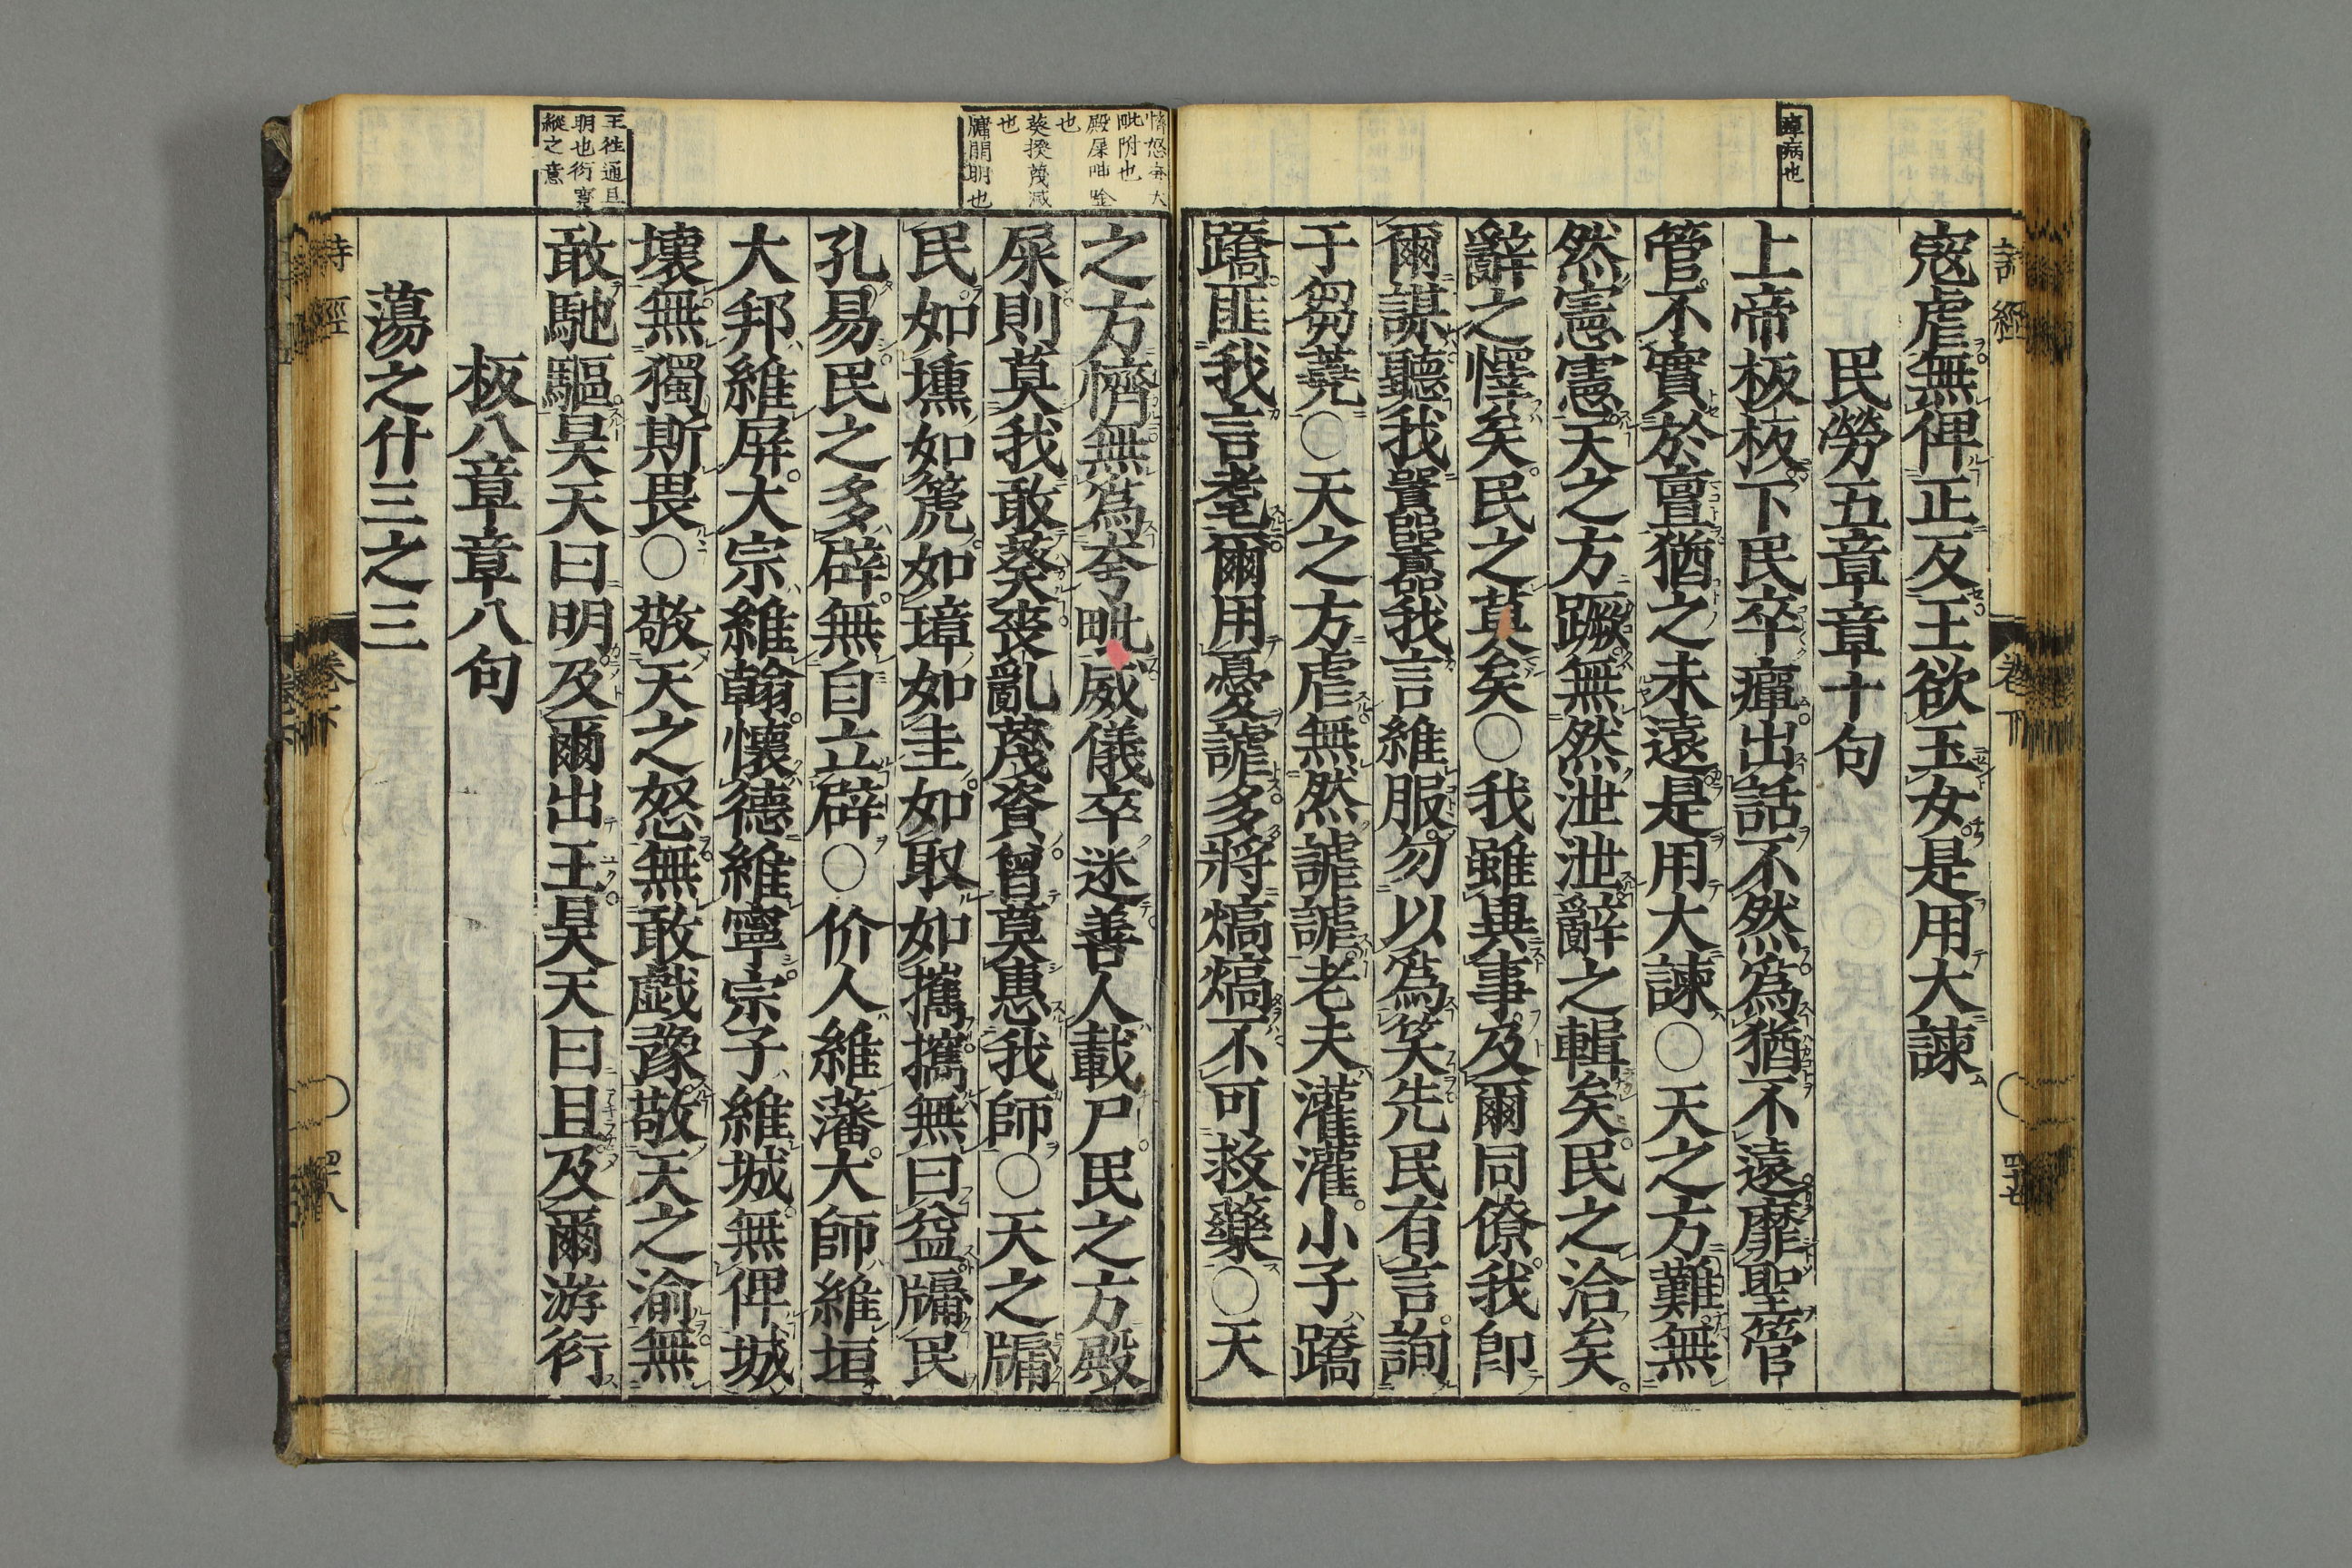 瘴病也
寇虐無俾正反王欲玉女是用大諫
民勞五章章十句
上帝板板下民卒癉出話不然爲猶不遠靡聖管
管不實於亶猶之未遠是用大諫○天之方難無
然憲憲天之方蹶無然泄泄辭之輯矣民之洽矣
辭之懌矣民之莫矣○我雖異事及爾同僚我卽
爾謀聽我囂囂我言維服勿以爲笑先民有言詢
于芻蕘○天之方虐無然謔謔老夫灌灌小子蹻
蹻匪我言耄爾用憂謔多將熇熇不可救藥○天
詩經
卷下
四十七
懠怒夸大
毗附也
殿屎呻唫
也
葵揆蔑滅
也
牖開明也
王往通旦
明也衍寬
縱之意
之方懠無爲夸毗威儀卒迷善人載尸民之方殿
屎則莫我敢葵喪亂蔑資曾莫惠我師○天之牖
民如壎如篪如璋如圭如取如攜攜無曰益牖民
孔易民之多辟無自立辟○价人維藩大師維垣
大邦維屏大宗維翰懷德維寧宗子維城無俾城
壞無獨斯畏○敬天之怒無敢戲豫敬天之渝無
敢馳驅昊天曰明及爾出王昊天曰旦及爾游衍
板八章章八句
蕩之什三之三
詩經
卷下
四十八